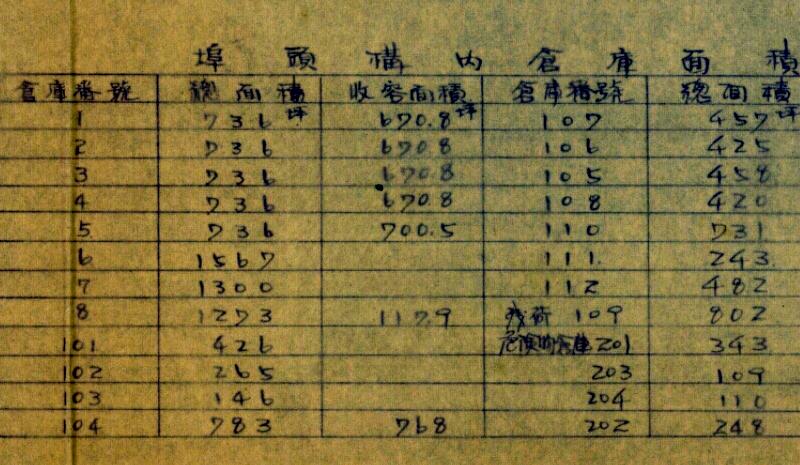 埠頭構内倉庫面積
倉庫番號 總面積 收容面積 倉庫番號 總面積
1 736坪 670.8坪 107 457坪
2 736 670.8 106 425
3 736 670.8 105 458
4 736 670.8 108 420
5 736 700.5 110 731
6 1567 111. 243
7 1300 112 482
8 1273 1179 残荷 109 802
101 426 倉庫 201 343
102 265 203 109
103 146 204 110
104 783 768 202 248